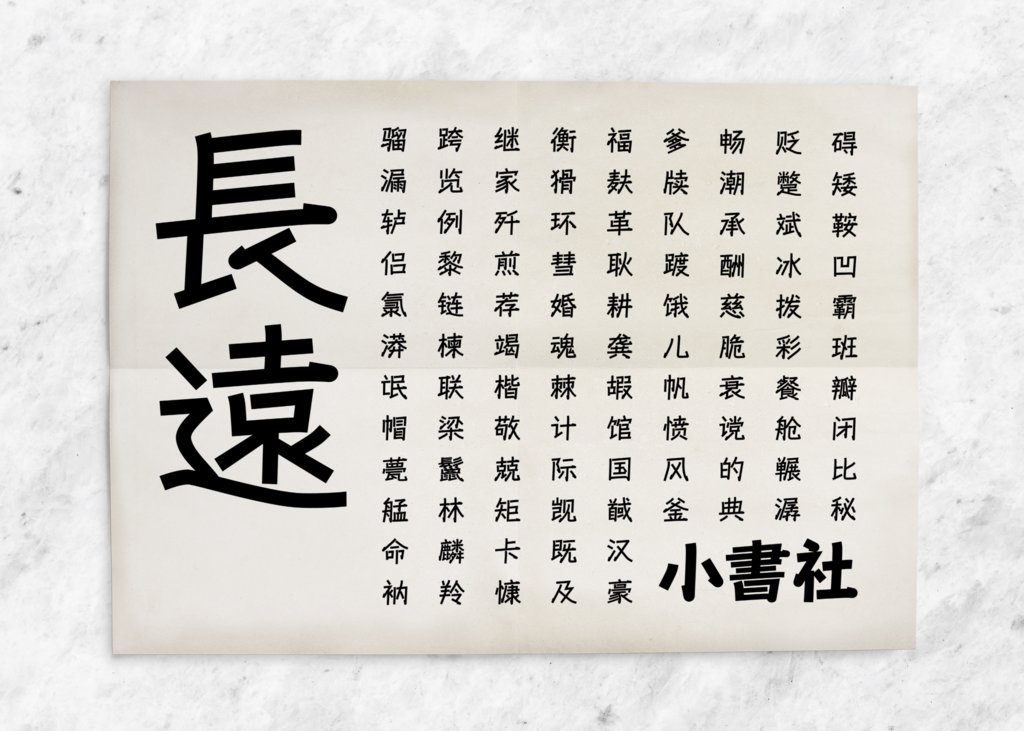 碍矮鞍凹霸班瓣闭比秘
贬蹩斌冰拨彩餐舱冁潺
畅潮承酬慈脆衰谠的典
爹牍队踱饿儿帆愤风釜
福麸革耿耕龚嘏馆国馘汉豪
衡猾环彗婚魂棘计际觊既及
继家歼煎荐竭楷敬兢矩卡慷
跨览例黎链楝联梁鬣林麟羚
骝漏轳侣氯漭氓帽甍艋命衲
長遠
小書社